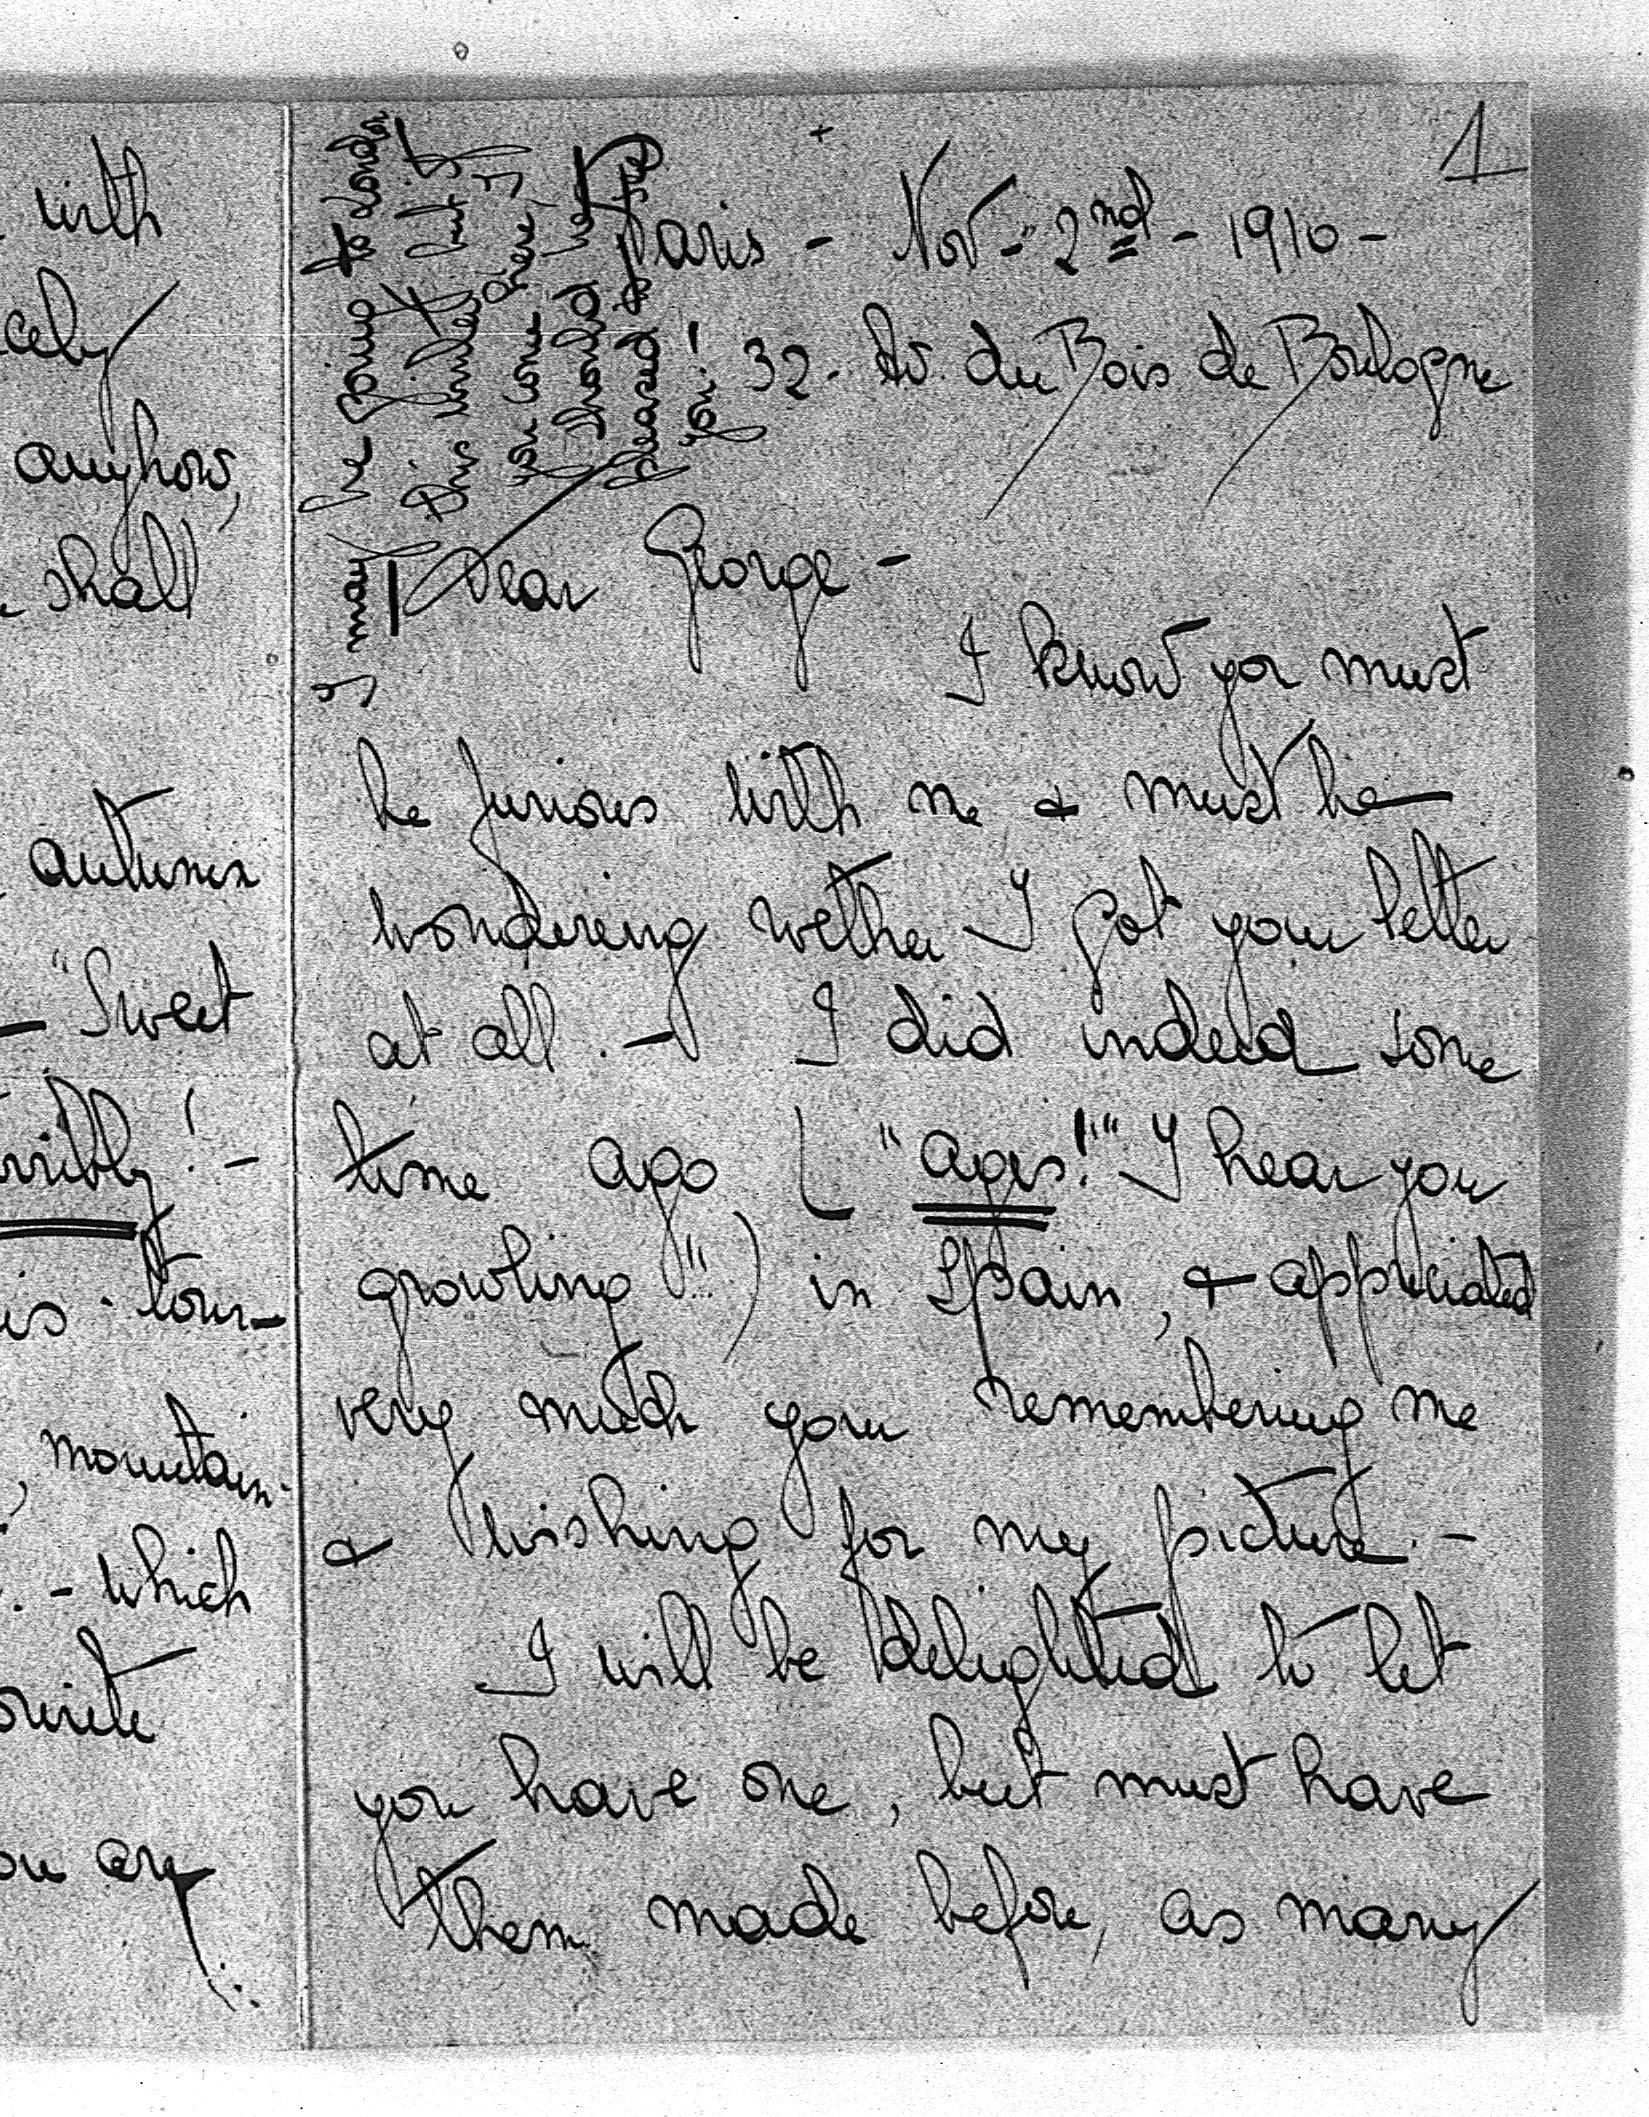 with
anyhow,
shall
autumn
— "Sweet
mountain
. - which
are
1
Paris - Nov - 2nd - 1910 -
32 - Av. du Bois de Boulogne
I may be going to London
this winter but if
you come there, I
should be
pleased to see
you!
Dear George -
I know you must
be furious with me & must be
wondering wether I got your letter
at all. - I did indeed some
time ago ( "ages!" "I hear you
growling"!..) in Spain, & appreciated
very much your remembering me
& wishing for my picture. -
I will be delighted to let
you have one, but must have
them made before, as many